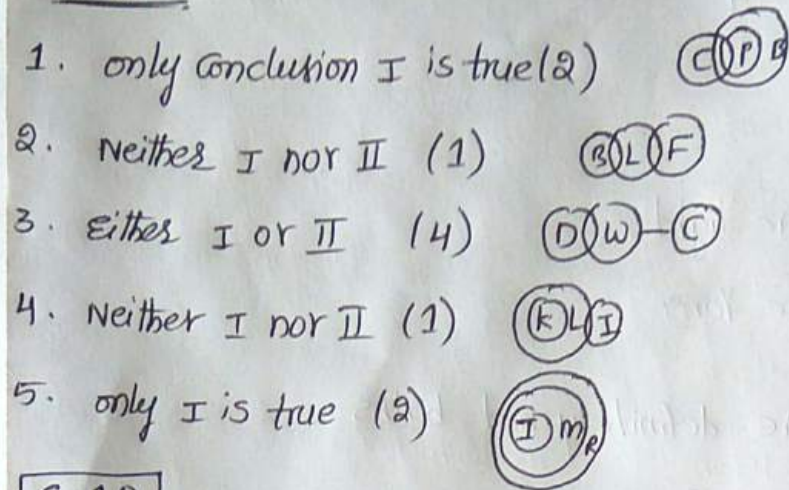 1. only Conclusion I is true (2) C P B
2. Neither I nor II (1) B L F
3. Either I or II (4) D W C
4. Neither I nor II (1) K L I
5. only I is true (2) I m R